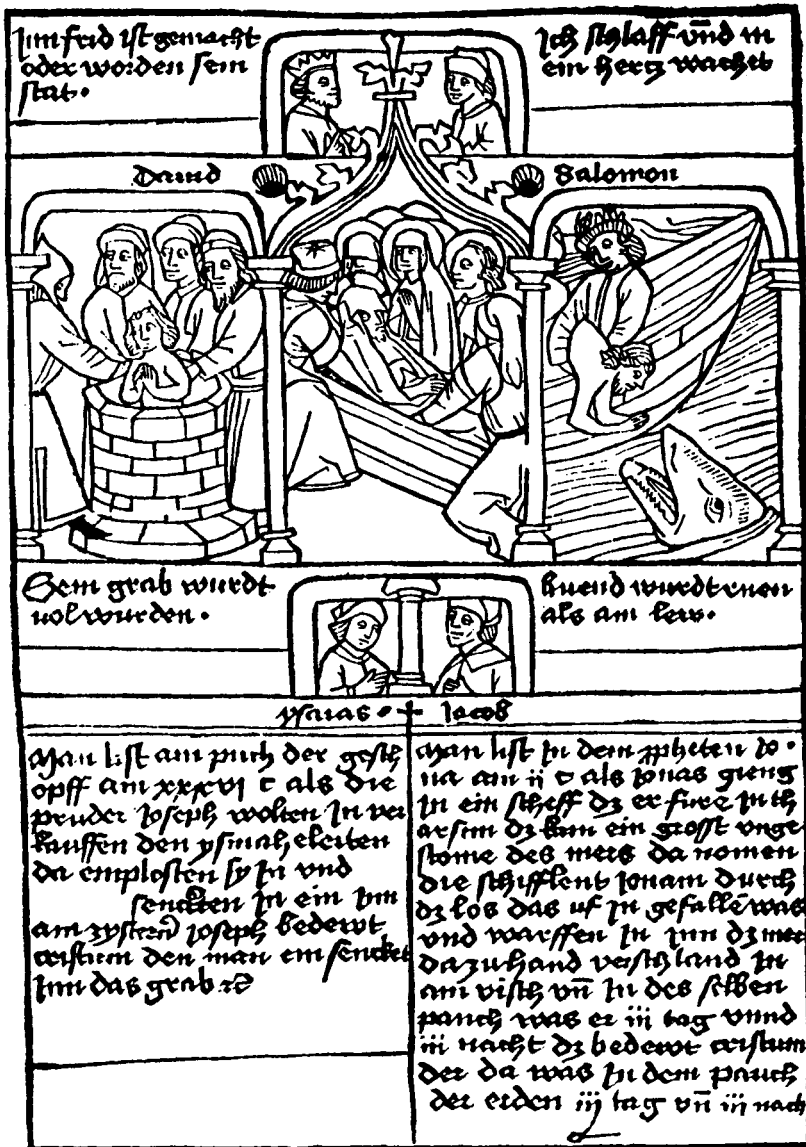 Inn frid ist gemacht
oder worden sein
stat.
Ich schlaff vnd in
ein hertz wachet
Dauid
Salomon
Sein grab wurdt
vol wurden.
als am lew.
ysaias. Jacob
Man list am puch der gesch
opff am xxxvi c als die
pruder Joseph wolten In ver
kauffen den ysmaheleiten
da emplosten sy In vnd
senckten In ein
am zystern Joseph bedewt
cristum den man ein sencket
Inn das grab ꝛc
Man list In dem ppheten Jo.
na am ii c als Jonas gieng
In ein scheff dz er fure In th
arsim dz kam ein grosst vnge
stome des mers da nomen
die schifflent Jonam durch
dz los das uf In gefallē was
vnd warffen In Inn dz mer
da zuhand verschland In
am visch vn̄ In des selben
pauch was er iii tag vnnd
iii nacht dz bedewt cristum
der da was In dem pauch
der erden iij tag vn̄ iii nach